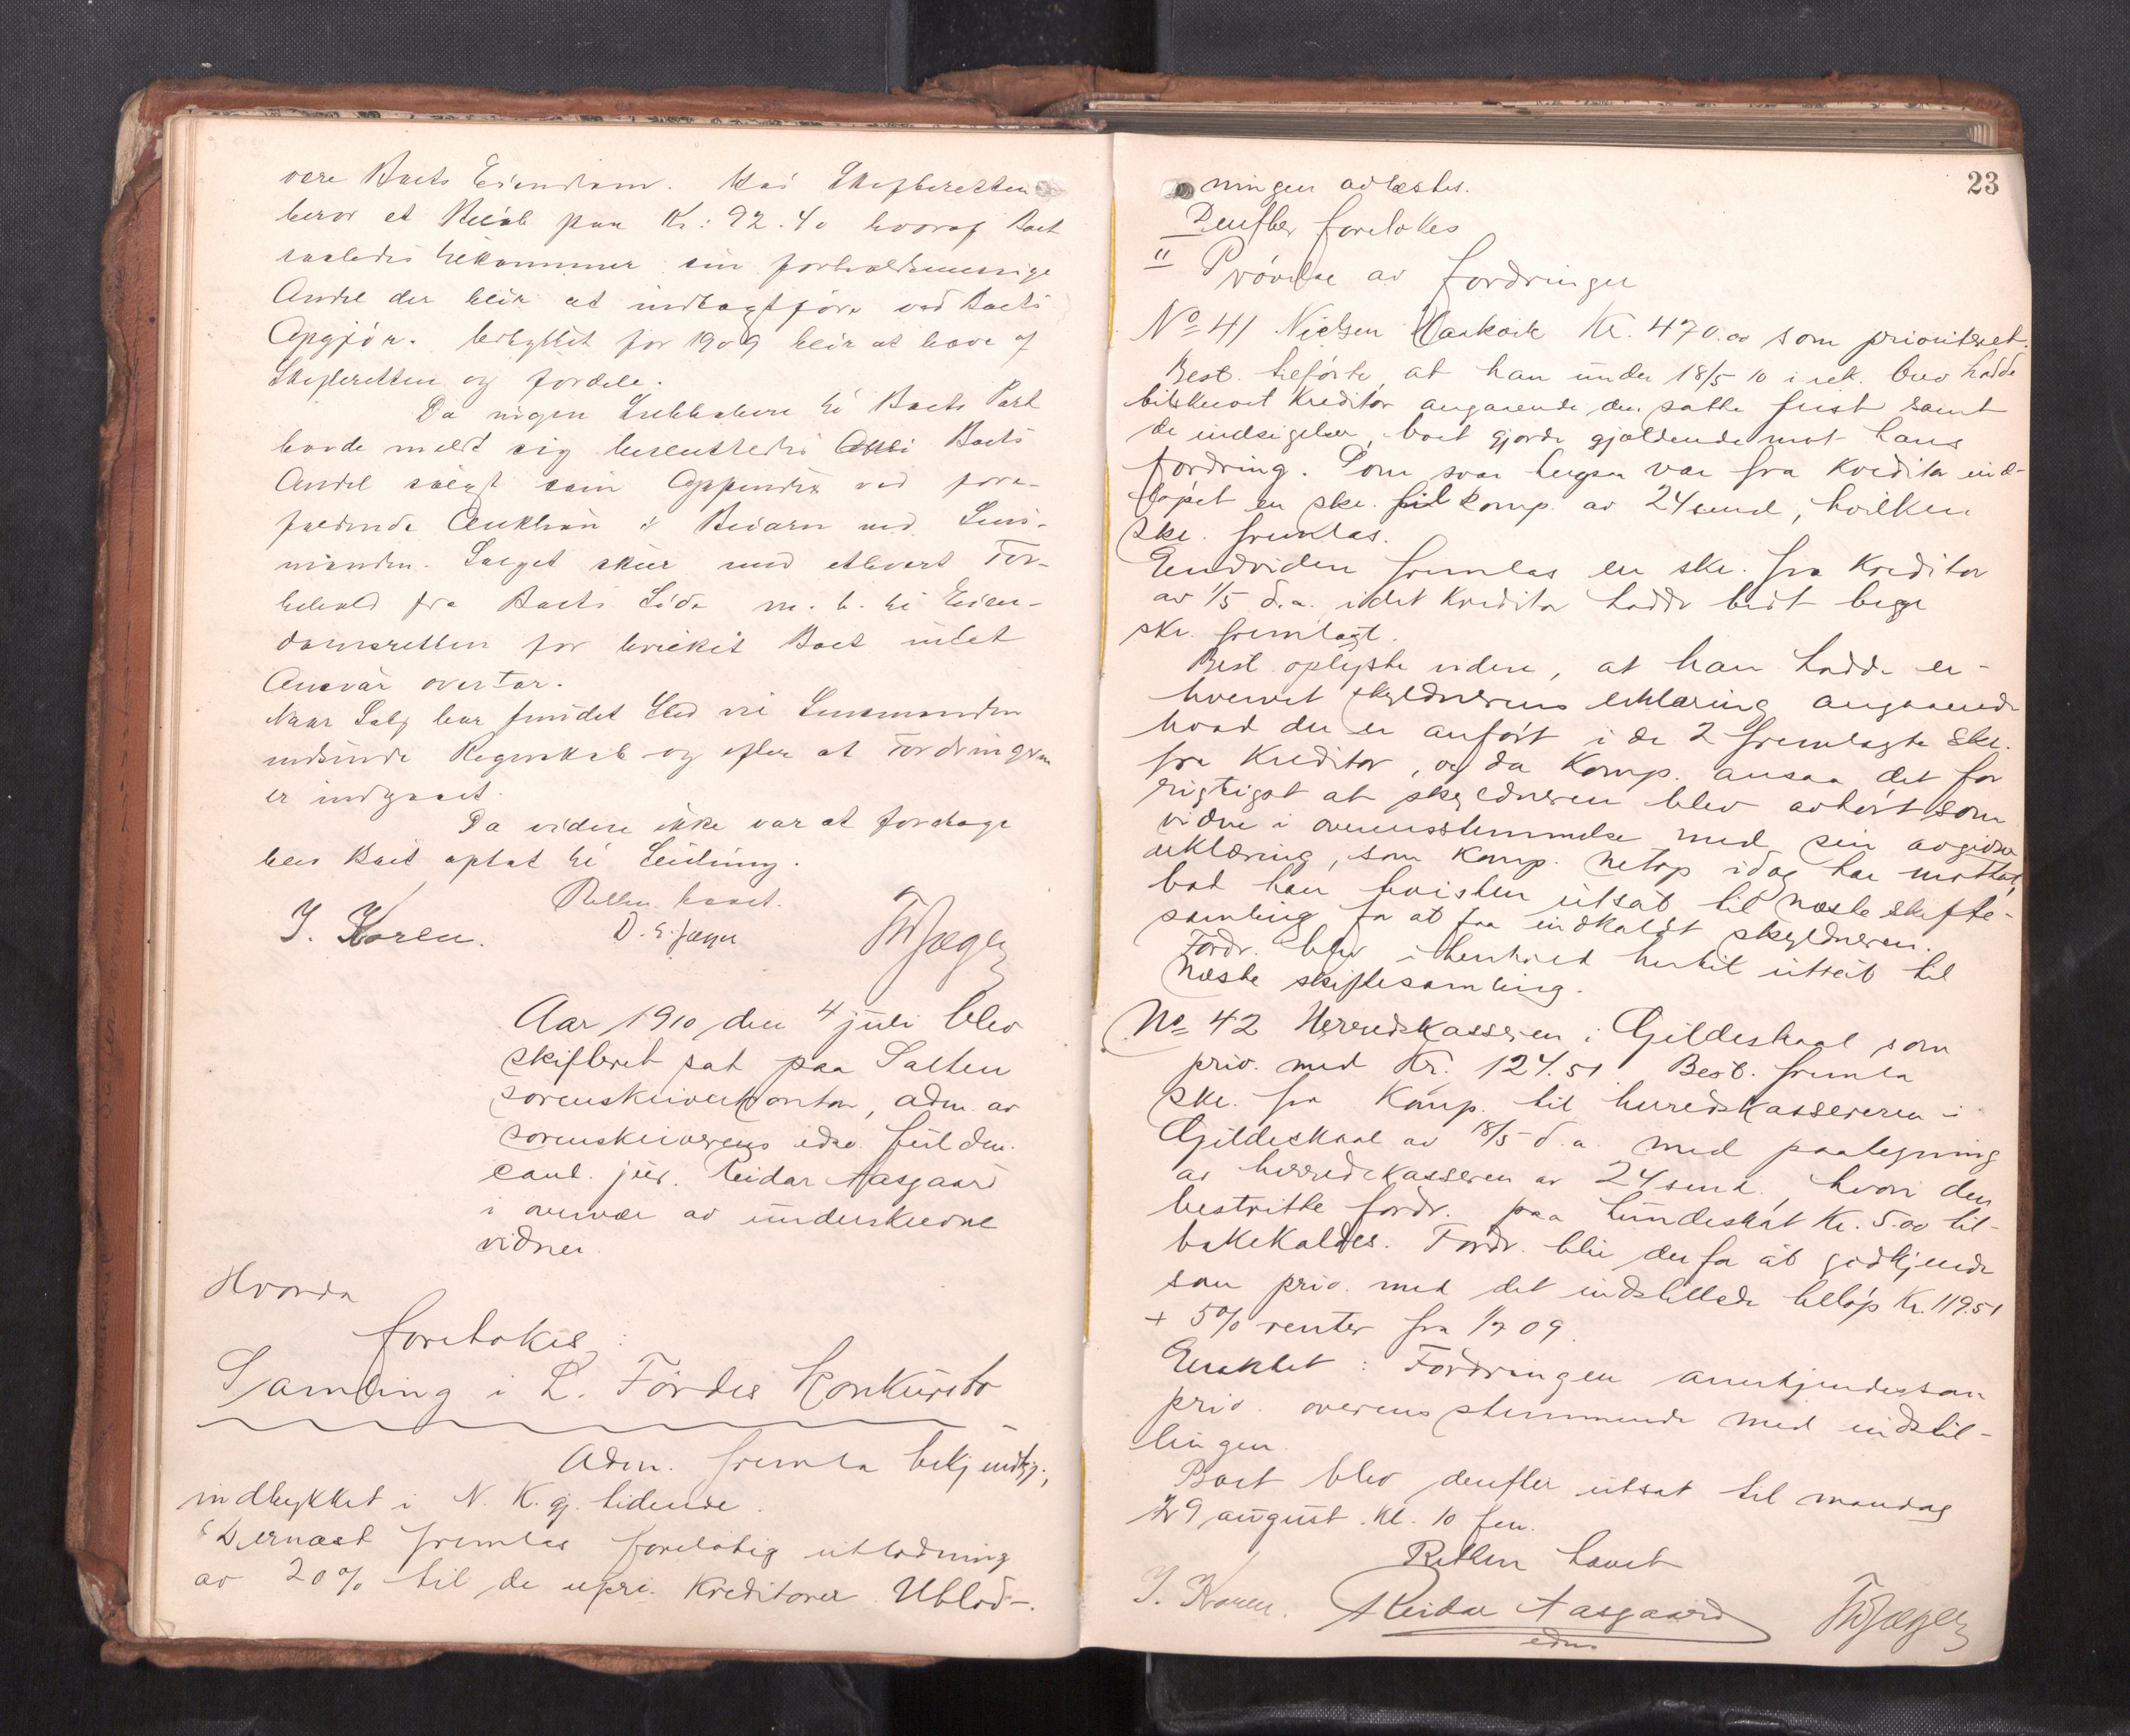 være Boets Eiendom. Hos Skifteretten
beror et Beløb paa Kr: 92.40 hvoraf Boet
saaledes tilkommer sin forholdsmessige
Andel der blir at indtagtføre ved Boets
Opgjør. Udbyttet for 1909 blir at hæve af
Skifteretten og fordele.
Da ingen Liebhabere til Boets Part
havde meldt sig besluttedes Boets
Andel solgt som Appendix ved fore-
faldende Auktion i Beiarn ved Lens-
manden. Salget skeer med ethvert For-
behold fra Boets Side m. h. til Eien-
domsretten for hvilket Boet intet
Ansvar overtar.
Naar Salg har fundet Sted vil Lensmanden
indsende Regnskab og efter at Fordringen
er indgaaet.
Da videre ikke var at foretage
blev Boet optat til Slutning.
Retten hævet.
J. Koren. D. E. Jæger ThJæger
Aar 1910 den 4 juli blev
skifteret sat paa Salten
sorenskriverkontor, adm. av
sorenskriverens edsv. fuldm.
cand. jur. Reidar Aasgaard
i overvær av underskrevne
vidner.
Hvorda
foretokes:
Samling i L. Førdes Konkursbo
Adm. fremla bekjendtgj.,
indrykket i N. K. gj. tidende.
Dernæst fremlas foreløbig utlodning
av 20% til de upri. Kreditorer. Utlod-
23
ningen avlæstes.
Derefter foretokes
" Prøvelse av fordringer
No 41 Nielsen Kr. 470.00 som prioriteret.
Best. tilførte, at han under 18/5 10 i rek. brev hadde
tilskrevet Kreditor angaaende den satte frist samt
de indsigelser, boet gjorde gjældende mot hans
fordring. Som svar herpaa var fra Kreditor ind-
løpet en skr. til komp. av 24 send, hvilken
skr. fremlas.
Endvidere fremlas en skr. fra Kreditor
av 1/5 d.a. idet Kreditor hadde bedt begge
skr. fremlagt.
Best. oplyste videre, at han hadde er-
hvervet skyldnerens erklæring angaaende
hvad der er anført i de 2 fremlagte skr.
fra Kreditor, og da Komp. ansaa det for
rigtigst at skyldneren blev avhørt som
vidne i overensstemmelse med sin avgivne
erklæring, som Komp. netop idag har mottat,
bad han tvisten utsat til næste skifte-
samling for at faa indkaldt skyldneren.
Fordr. blev i henhold hertil utsat til
næste skiftesamling.
No 42 Herredskasseren i Gildeskaal som
prio. med Kr. 124.51. Best. fremla
skr. fra Komp. til herredskassereren i
Gildeskaal av 18/5 d.a. med paategning
av herredskasseren av 24 send., hvori den
bestridte fordr. paa hundeskat Kr. 5.00 til-
bakekaldes. Fordr. blir derfor at godkjende
som prio. med det indstillede beløp Kr. 119.51
+ 5% renter fra 1/7 09.
Eragtet: Fordringen anerkjendes som
prio. overensstemmende med indstil-
lingen.
Boet blev derefter utsat til mandag
29 august kl. 10 fm.
Retten hævet
J. Koren. Reidar Aasgaard ThJæger
edsv.